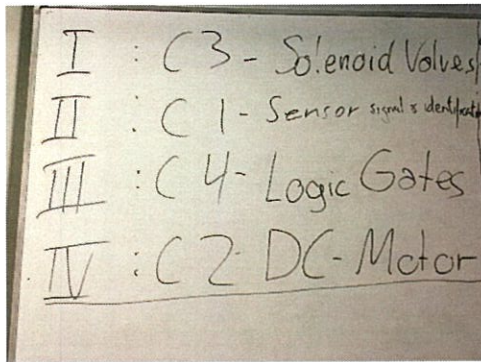 I : C3 - Solenoid Valves
II : C1 - Sensor signal & identification
III : C4 - Logic Gates
IV : C2 - DC-Motor